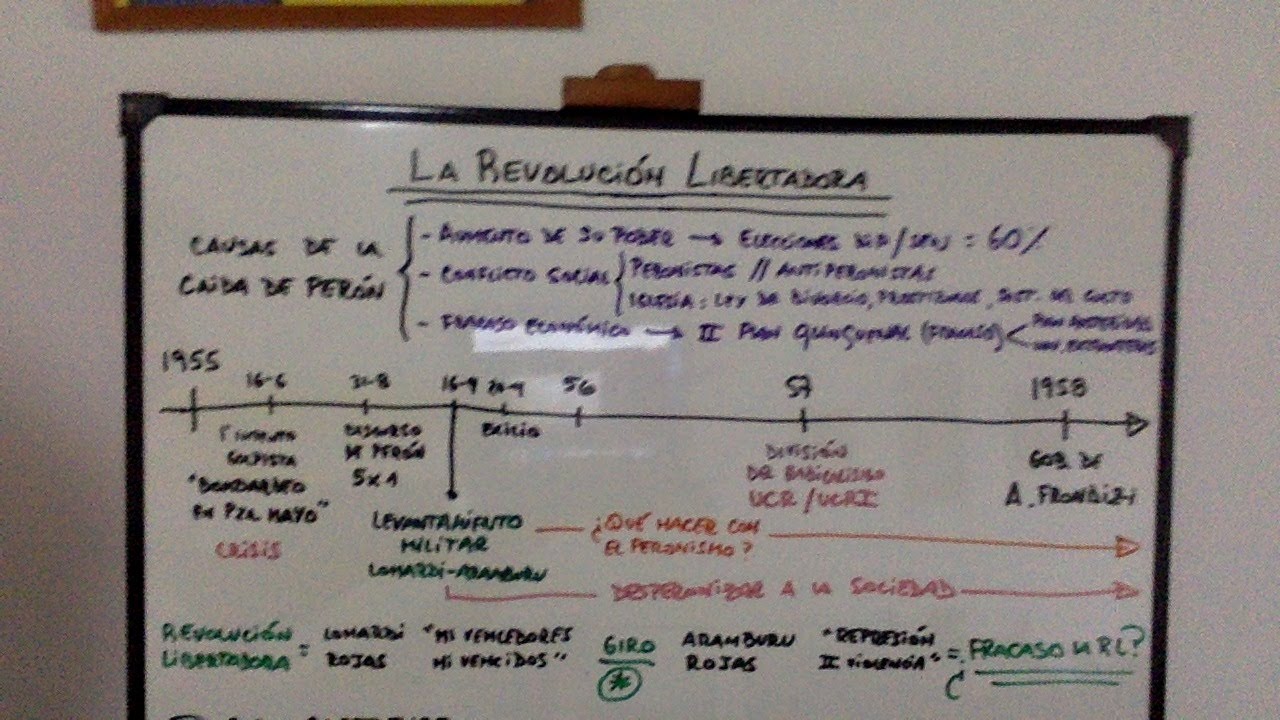 LA REVOLUCIÓN LIBERTADORA
CAUSAS DE LA
CAÍDA DE PERÓN
- AUMENTO DE SU PODER → ELECCIONES = 60%
- CONFLICTO SOCIAL
PERONISTAS // ANTIPERONISTAS
IGLESIA: LEY DE DIVORCIO,
- FRACASO ECONÓMICO → II PLAN QUINQUENAL (FRACASO)
1955
16-6
31-8
16-9
56
57
1958
GOLPISTA
"BOMBARDEO
EN PZA. MAYO"
CRISIS
DISCURSO
DE PERÓN
5x1
EXILIO
DIVISIÓN
DE RADICALISMO
UCR/UCRI
GOB. DE
A. FRONDIZI
LEVANTAMIENTO
MILITAR
LONARDI-ARAMBURU
¿QUÉ HACER CON
EL PERONISMO?
DESPERONIZAR A LA SOCIEDAD
REVOLUCIÓN
LIBERTADORA =
LONARDI
ROJAS
"NI VENCEDORES
NI VENCIDOS"
GIRO
*
ARAMBURU
ROJAS
"REPRESIÓN
VIOLENCIA"
= FRACASO RL?